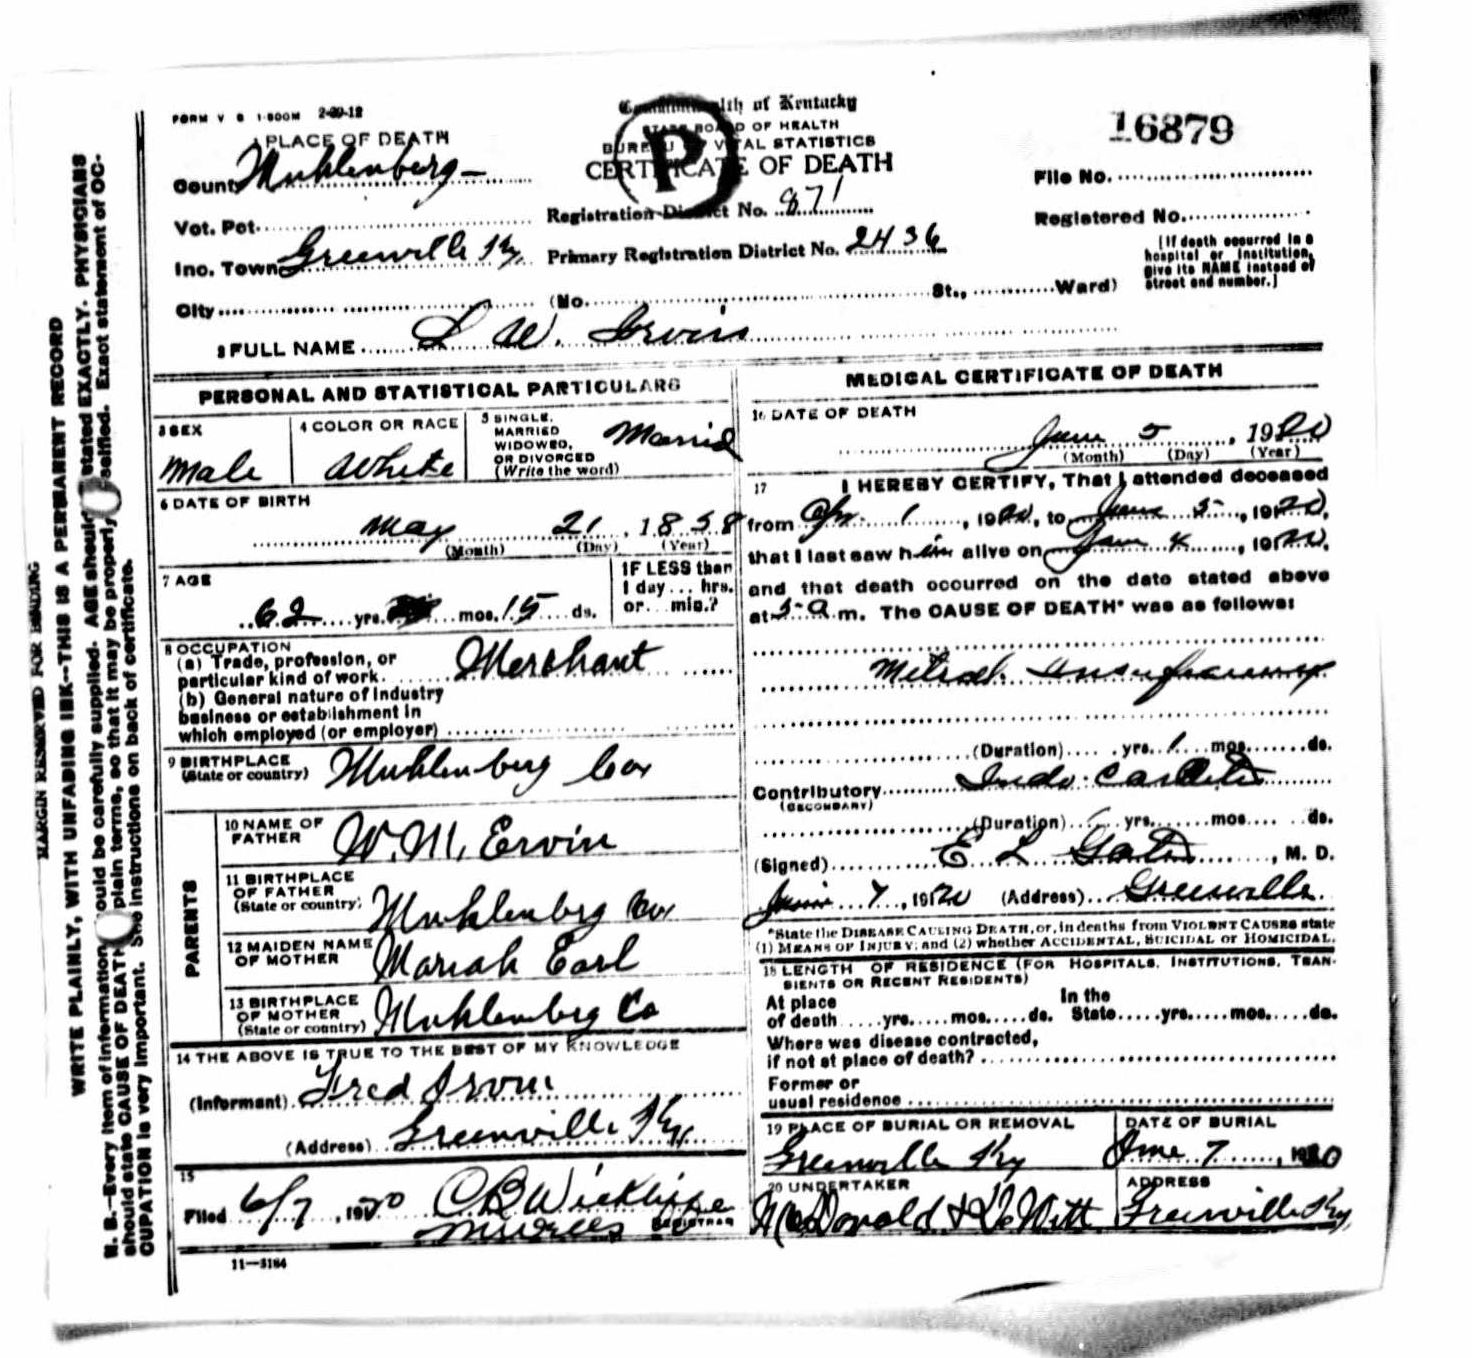 FORM V S 1-500M 2-20-12
Commonwealth of Kentucky
STATE BOARD OF HEALTH
BUREAU OF VITAL STATISTICS
CERTIFICATE OF DEATH
P
16879
1 PLACE OF DEATH
County Muhlenberg
Vot. Pct.
Inc. Town Greenville Ky.
City (No. St., Ward)
Registration District No. 871
Primary Registration District No. 2436
File No.
Registered No.
[If death occurred in a
hospital or institution,
give its NAME instead of
street and number.]
2 FULL NAME W. Irvin
PERSONAL AND STATISTICAL PARTICULARS
3 SEX
Male
4 COLOR OR RACE
White
5 SINGLE,
MARRIED
WIDOWED,
OR DIVORCED
(Write the word)
Married
6 DATE OF BIRTH
May 21, 1858
(Month) (Day) (Year)
7 AGE
62 yrs. mos. 15 ds.
IF LESS than
1 day... hrs.
or... min.?
8 OCCUPATION
(a) Trade, profession, or
particular kind of work. Merchant
(b) General nature of industry
business or establishment in
which employed (or employer)
9 BIRTHPLACE
(State or country) Muhlenberg Co
PARENTS
10 NAME OF
FATHER W. M. Ervin
11 BIRTHPLACE
OF FATHER
(State or country) Muhlenberg Co
12 MAIDEN NAME
OF MOTHER Mariah Earl
13 BIRTHPLACE
OF MOTHER
(State or country) Muhlenberg Co
14 THE ABOVE IS TRUE TO THE BEST OF MY KNOWLEDGE
(Informant) Fred Irvin
(Address) Greenville Ky.
15
Filed 6/7, 1920 C B Wickliffe
REGISTRAR
11-3184
MEDICAL CERTIFICATE OF DEATH
16 DATE OF DEATH
June 5, 1920
(Month) (Day) (Year)
17 I HEREBY CERTIFY, That I attended deceased
from Apr. 1, 1920, to June 5, 1920,
that I last saw him alive on June 4, 1920,
and that death occurred on the date stated above
at 5 a m. The CAUSE OF DEATH* was as follows:
Mitral Insufficiency
(Duration) yrs. 1 mos. ds.
Contributory Endo-Carditis
(SECONDARY)
(Duration) yrs. mos ds.
(Signed) E L Gates, M. D.
June 7, 1920 (Address) Greenville
*State the DISEASE CAUSING DEATH, or, in deaths from VIOLENT CAUSES state
(1) MEANS OF INJURY; and (2) whether ACCIDENTAL, SUICIDAL or HOMICIDAL.
18 LENGTH OF RESIDENCE (FOR HOSPITALS, INSTITUTIONS, TRAN-
SIENTS OR RECENT RESIDENTS)
At place
of death yrs. mos. ds.
In the
State yrs. mos. ds.
Where was disease contracted,
if not at place of death?
Former or
usual residence
19 PLACE OF BURIAL OR REMOVAL
Greenville Ky
DATE OF BURIAL
June 7, 1920
20 UNDERTAKER
McDonald & DeWitt
ADDRESS
Greenville Ky,
MARGIN RESERVED FOR BINDING
WRITE PLAINLY, WITH UNFADING INK--THIS IS A PERMANENT RECORD
N. B.--Every item of information should be carefully supplied. AGE should stated EXACTLY. PHYSICIANS
should state CAUSE OF DEATH plain terms, so that it may be properly classified. Exact statement of OC-
CUPATION is very important. See instructions on back of certificate.